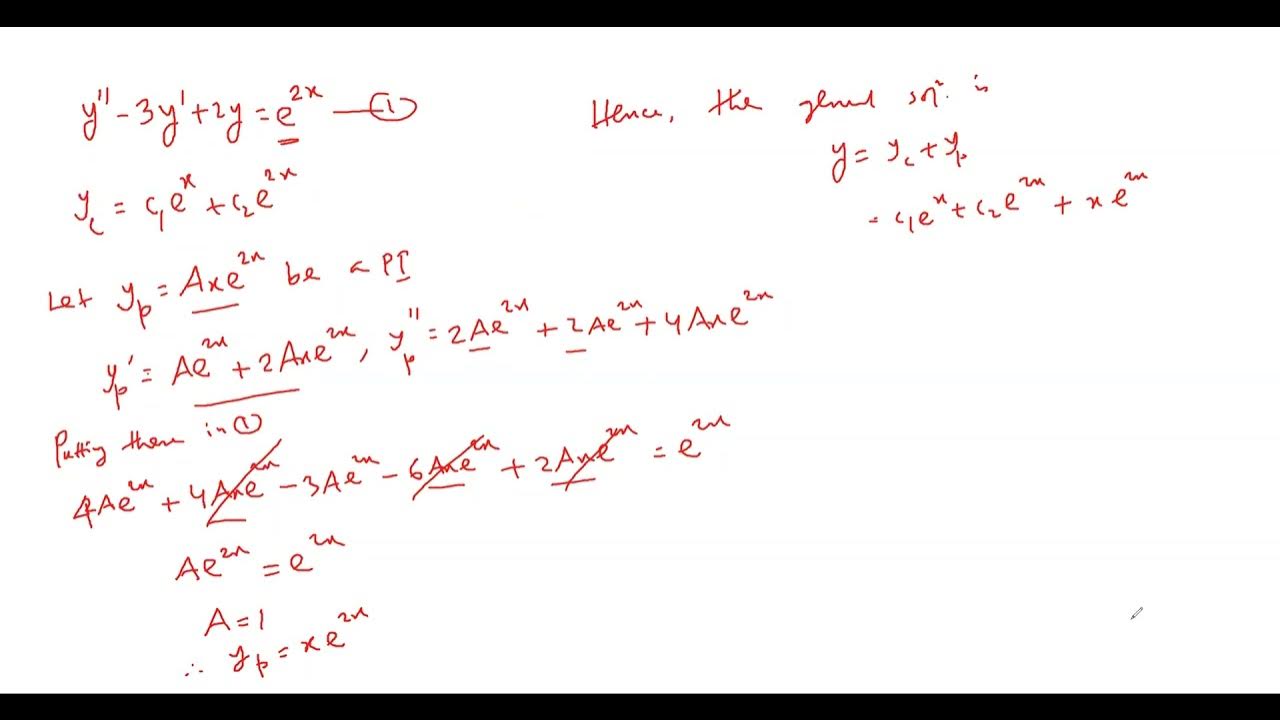 y'' - 3y' + 2y = e^{2x} — ①
y_c = c_1 e^x + c_2 e^{2x}
Let y_p = Axe^{2x} be a PI
y_p' = Ae^{2x} + 2Axe^{2x}, y_p'' = 2Ae^{2x} + 2Ae^{2x} + 4Axe^{2x}
Putting them in ①
4Ae^{2x} + 4Axe^{2x} - 3Ae^{2x} - 6Axe^{2x} + 2Axe^{2x} = e^{2x}
Ae^{2x} = e^{2x}
A = 1
∴ y_p = xe^{2x}
Hence, the general solⁿ. is
y = y_c + y_p
= c_1 e^x + c_2 e^{2x} + x e^{2x}